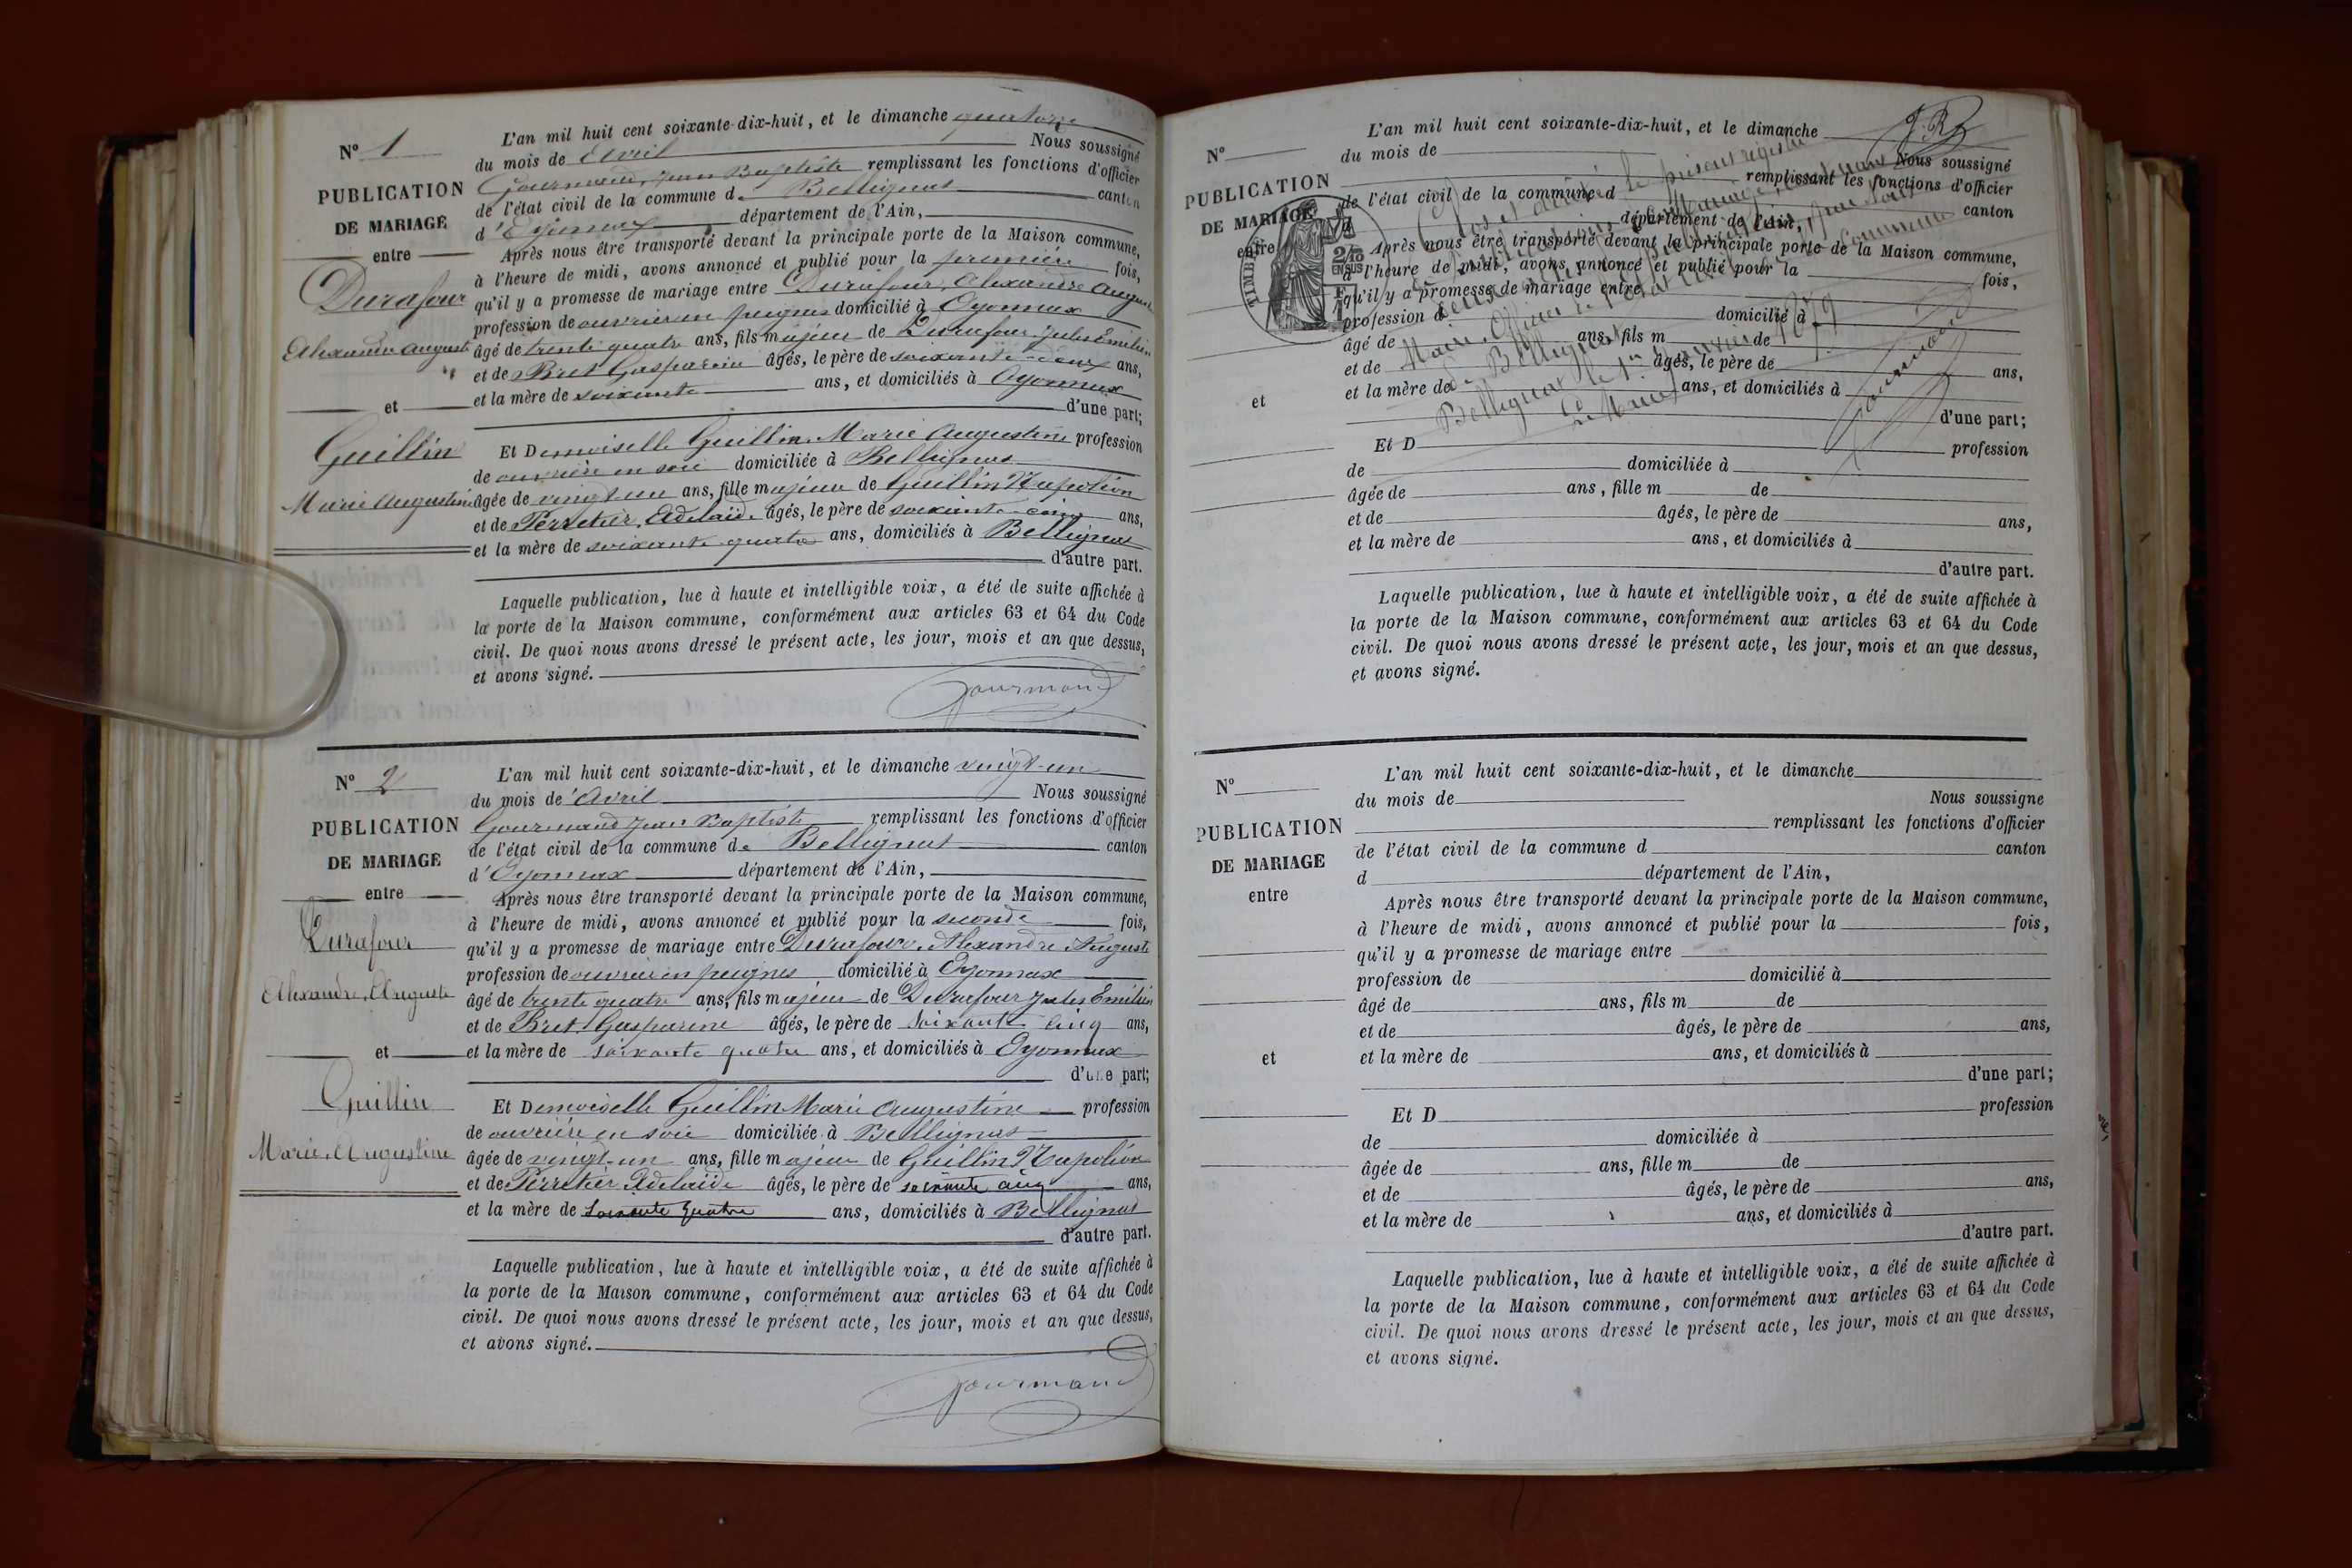 N° 1
PUBLICATION
DE MARIAGE
entre
Durafour
Alexandre Auguste
et
Guillin
Marie Augustine
L'an mil huit cent soixante-dix-huit, et le dimanche quatorze
du mois de Avril Nous soussigné
Gourmand, Jean Baptiste remplissant les fonctions d'officier
de l'état civil de la commune de Bellignat canton
d'Oyonnax département de l'Ain,
Après nous être transporté devant la principale porte de la Maison commune,
à l'heure de midi, avons annoncé et publié pour la première fois,
qu'il y a promesse de mariage entre Durafour, Alexandre Auguste
profession de ouvrier en peignes domicilié à Oyonnax
âgé de trente quatre ans, fils majeur de Durafour Jules Emilien
et de Bret Gasparine âgés, le père de soixante-deux ans,
et la mère de soixante ans, et domiciliés à Oyonnax
d'une part;
Et Demoiselle Guillin Marie Augustine profession
de ouvrière en soie domiciliée à Bellignat
âgée de vingt un ans, fille majeure de Guillin Napoléon
et de Perretier, Adelaïde âgés, le père de soixante-cinq ans,
et la mère de soixante-quatre ans, domiciliés à Bellignat
d'autre part.
Laquelle publication, lue à haute et intelligible voix, a été de suite affichée à
la porte de la Maison commune, conformément aux articles 63 et 64 du Code
civil. De quoi nous avons dressé le présent acte, les jour, mois et an que dessus,
et avons signé.
Gourmand
N° 2
PUBLICATION
DE MARIAGE
entre
Durafour
Alexandre Auguste
et
Guillin
Marie Augustine
L'an mil huit cent soixante-dix-huit, et le dimanche vingt-un
du mois de Avril Nous soussigné
Gourmand Jean Baptiste remplissant les fonctions d'officier
de l'état civil de la commune de Bellignat canton
d'Oyonnax département de l'Ain,
Après nous être transporté devant la principale porte de la Maison commune,
à l'heure de midi, avons annoncé et publié pour la seconde fois,
qu'il y a promesse de mariage entre Durafour, Alexandre Auguste
profession de ouvrier en peignes domicilié à Oyonnax
âgé de trente quatre ans, fils majeur de Durafour Jules Emilien
et de Bret Gasparine âgés, le père de soixante cinq ans,
et la mère de soixante quatre ans, et domiciliés à Oyonnax
d'une part;
Et Demoiselle Guillin Marie Augustine profession
de ouvrière en soie domiciliée à Bellignat
âgée de vingt-un ans, fille majeure de Guillin Napoléon
et de Perretier Adelaïde âgés, le père de soixante cinq ans,
et la mère de soixante quatre ans, domiciliés à Bellignat
d'autre part.
Laquelle publication, lue à haute et intelligible voix, a été de suite affichée à
la porte de la Maison commune, conformément aux articles 63 et 64 du Code
civil. De quoi nous avons dressé le présent acte, les jour, mois et an que dessus,
et avons signé.
Gourmand
N°
PUBLICATION
DE MARIAGE
entre
et
TIMBRE
2/10
EN SUS
L'an mil huit cent soixante-dix-huit, et le dimanche
du mois de Nous soussigné
remplissant les fonctions d'officier
de l'état civil de la commune d canton
d département de l'Ain,
Après nous être transporté devant la principale porte de la Maison commune,
à l'heure de midi, avons annoncé et publié pour la fois,
qu'il y a promesse de mariage entre
profession d domicilié à
âgé de ans, fils m de
et de âgés, le père de ans,
et la mère de ans, et domiciliés à
d'une part;
Et D profession
de domiciliée à
âgée de ans, fille m de
et de âgés, le père de ans,
et la mère de ans, et domiciliés à
d'autre part.
Laquelle publication, lue à haute et intelligible voix, a été de suite affichée à
la porte de la Maison commune, conformément aux articles 63 et 64 du Code
civil. De quoi nous avons dressé le présent acte, les jour, mois et an que dessus,
et avons signé.
Clos et arrêté le présent registre
de publications de Mariage, contenant
deux par nous
Maire, Officier de l'état civil commune
de Bellignat
Bellignat le 1er Janvier 1879
Le Maire
Gourmand
N°
PUBLICATION
DE MARIAGE
entre
et
L'an mil huit cent soixante-dix-huit, et le dimanche
du mois de Nous soussigne
remplissant les fonctions d'officier
de l'état civil de la commune d canton
d département de l'Ain,
Après nous être transporté devant la principale porte de la Maison commune,
à l'heure de midi, avons annoncé et publié pour la fois,
qu'il y a promesse de mariage entre
profession de domicilié à
âgé de ans, fils m de
et de âgés, le père de ans,
et la mère de ans, et domiciliés à
d'une part;
Et D profession
de domiciliée à
âgée de ans, fille m de
et de âgés, le père de ans,
et la mère de ans, et domiciliés à
d'autre part.
Laquelle publication, lue à haute et intelligible voix, a été de suite affichée à
la porte de la Maison commune, conformément aux articles 63 et 64 du Code
civil. De quoi nous avons dressé le présent acte, les jour, mois et an que dessus,
et avons signé.